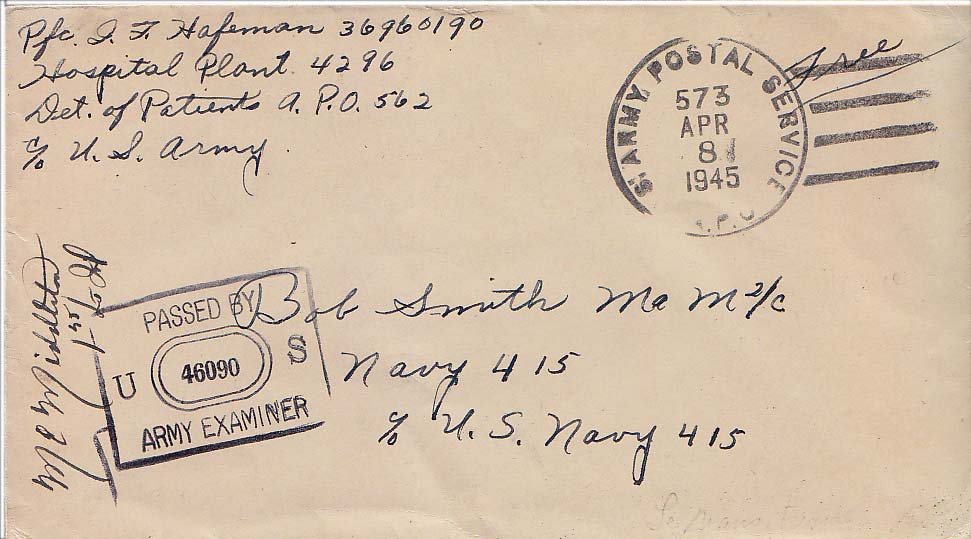 Pfc. I. F. Hafeman 36960190
Hospital Plant 4296
Det. of Patients A. P.O. 562
c/o U. S. Army.
Free
S. ARMY POSTAL SERVICE
573
APR
8
1945
A.P.O
PASSED BY
U 46090 S
ARMY EXAMINER
Middleton
1st Lt
Bob Smith Ma M 2/c
Navy 415
c/o U. S. Navy 415